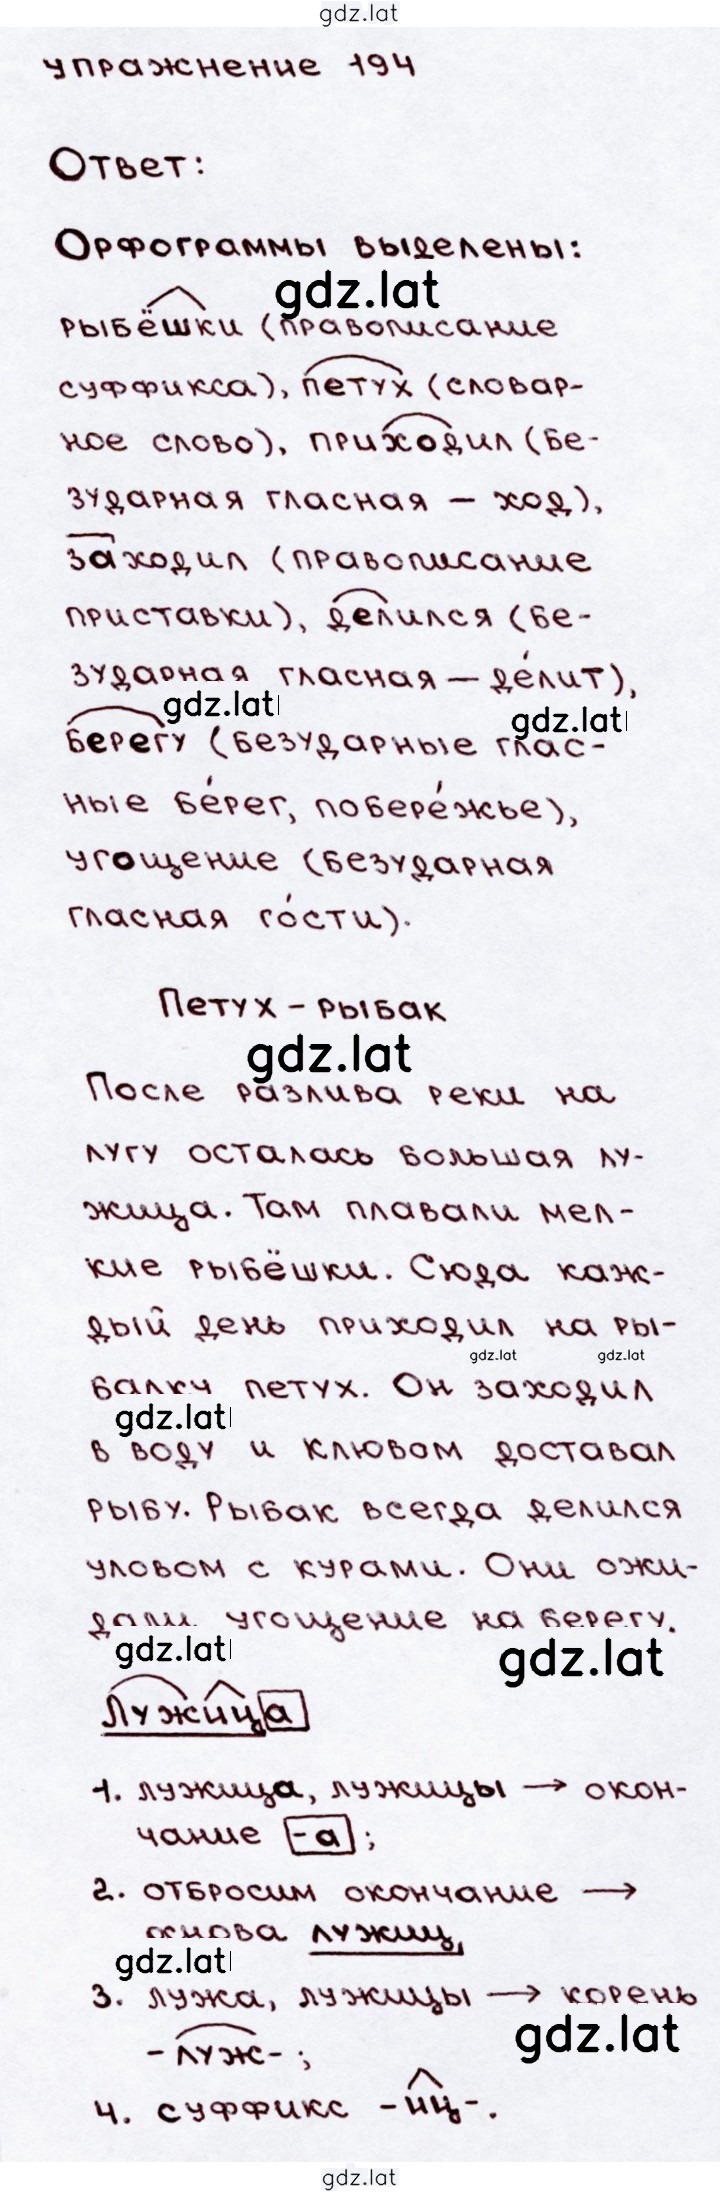 gdz.lat
упражнение 194
Ответ:
Орфограммы выделены:
gdz.lat
рыбёшки (правописание
суффикса), петух (словар-
ное слово), приходил (бе-
зударная гласная – ход),
заходил (правописание
приставки), делился (бе-
зударная гласная – де́лит),
gdz.lat
gdz.lat
берегу (безударные глас-
ные бе́рег, побере́жье),
угощение (безударная
гласная го́сти).
Петух – рыбак
gdz.lat
После разлива реки на
лугу осталась большая лу-
жица. Там плавали мел-
кие рыбёшки. Сюда каж-
дый день приходил на ры-
gdz.lat gdz.lat
балку петух. Он заходил
gdz.lat
в воду и клювом доставал
рыбу. Рыбак всегда делился
уловом с курами. Они ожи-
дали угощение на берегу.
gdz.lat
gdz.lat
Лужица
1. лужица, лужицы → окон-
чание -а ;
2. отбросим окончание →
основа лужиц
gdz.lat
3. лужа, лужицы → корень
gdz.lat
-луж- ;
4. суффикс -иц-.
gdz.lat